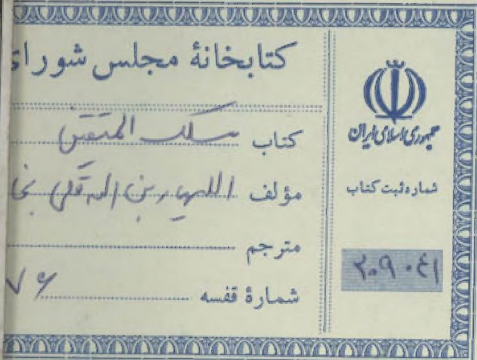 کتابخانهٔ مجلس شورا
کتاب مسلک المتقین
مؤلف اللهیار بن الله قلی
مترجم
شمارهٔ قفسه ۷۶
جمهوری اسلامی ایران
شماره ثبت کتاب
۲۰۹۰۴۱